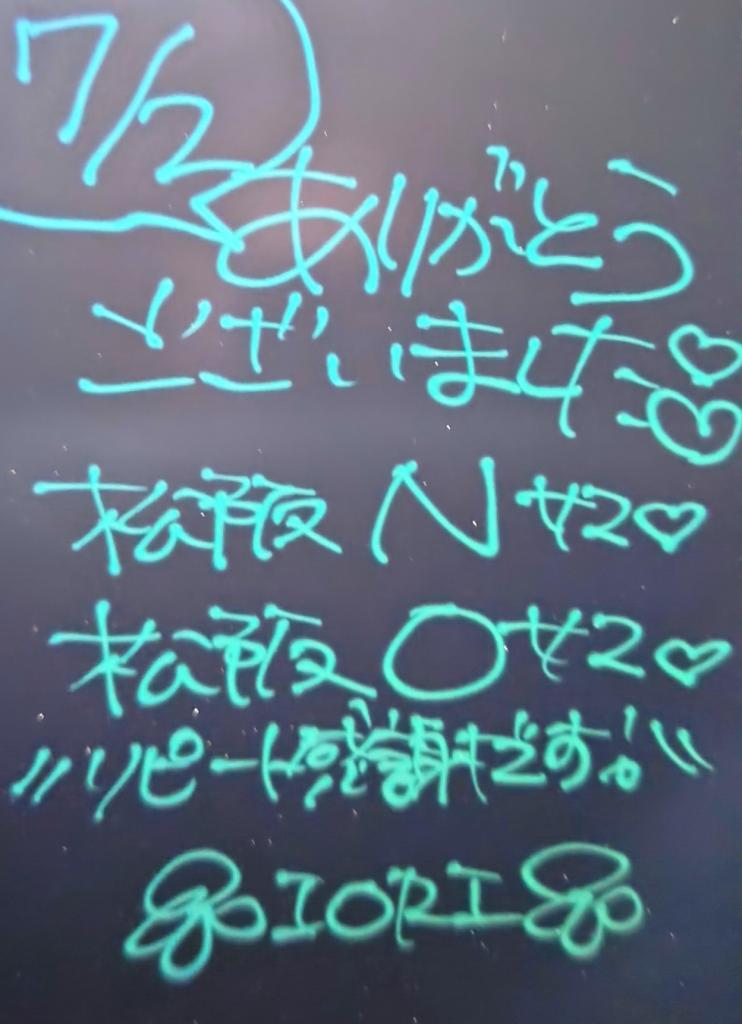 7/2
ありがとう
ございました♡♡
松阪 N サマ♡
松阪 O サマ♡
〃リピート感謝です!!〃
IORI